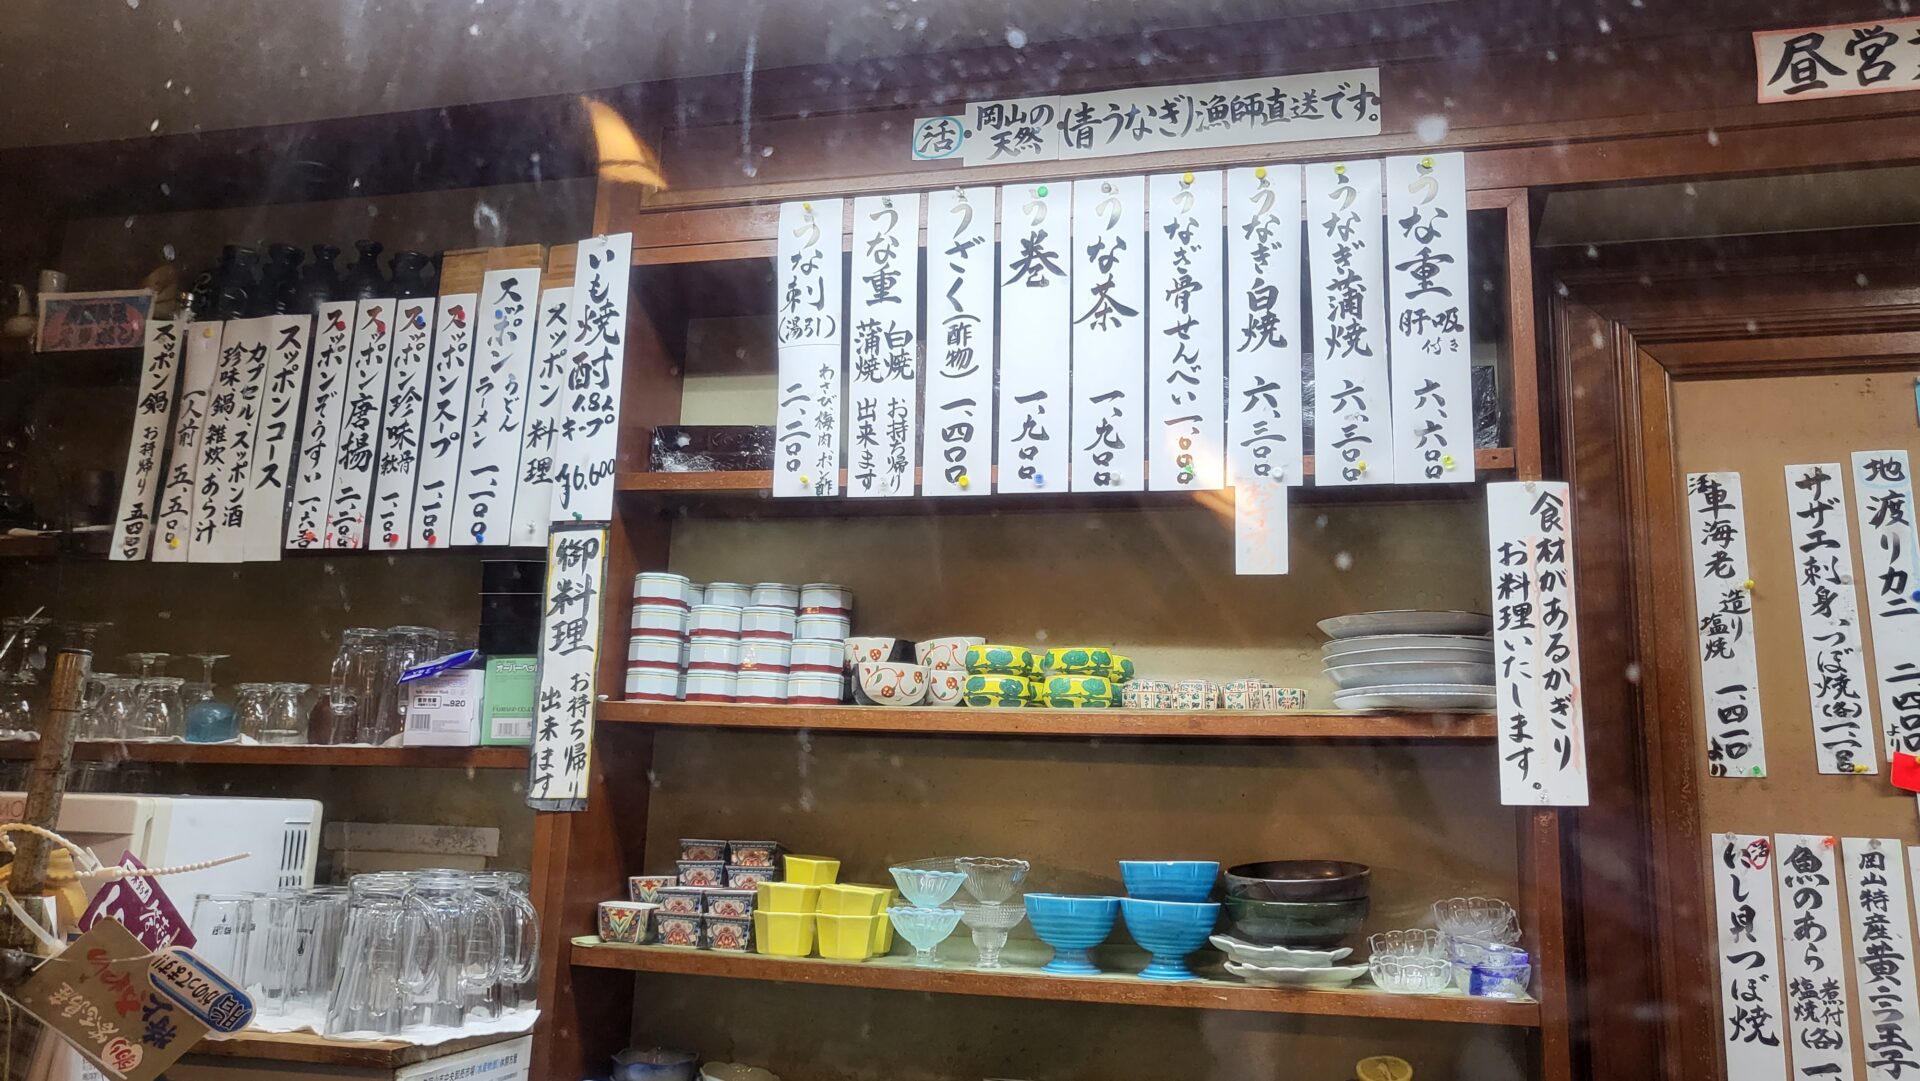 昼営
活・岡山の天然(青うなぎ)漁師直送です。
うな重 肝吸付き 六.六〇〇
うなぎ蒲焼 六.三〇〇
うなぎ白焼 六.三〇〇
うなぎ骨せんべい 一.〇〇〇
うな茶 一.九〇〇
う巻 一.九〇〇
うざく(酢物) 一.四〇〇
うな重 白焼 蒲焼 お持ち帰り出来ます
うな刺(湯引) わさび梅肉ポン酢 二.二〇〇
いも焼酎 1.8L キープ ¥6.600
スッポン料理
スッポン うどん ラーメン 一.一〇〇
スッポンスープ 一.一〇〇
スッポン珍味 軟骨 一.一〇〇
スッポン唐揚 二.二〇〇
スッポンぞうすい 一.六五〇
スッポンコース
カプセル、スッポン酒
珍味、鍋、雑炊、あら汁
一人前 五.五〇〇
スッポン鍋 お持帰り 五.四〇〇
御料理 お持ち帰り出来ます
食材があるかぎり
お料理いたします。
地 渡りカニ 二.四〇〇より
サザエ刺身、つぼ焼(各)一.一〇〇
活 車海老 造り 塩焼 一.四一〇より
岡山特産黄ニラ玉子
魚のあら 煮付 塩焼(各)一
活 にし貝つぼ焼
オーバーペット
920
がのってます!!